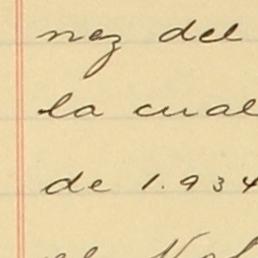 nez del
la cual
de 1.934